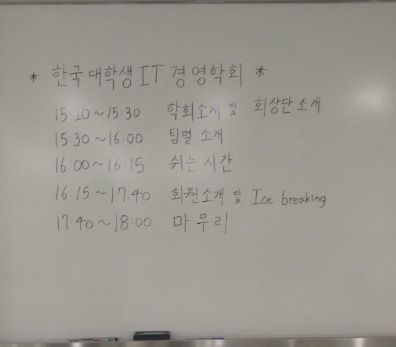 * 한국대학생IT경영학회 *
15:10~15:30 학회소개 및 회장단소개
15:30~16:00 팀별 소개
16:00~16:15 쉬는시간
16:15~17:40 회원소개 및 Ice breaking
17:40~18:00 마무리